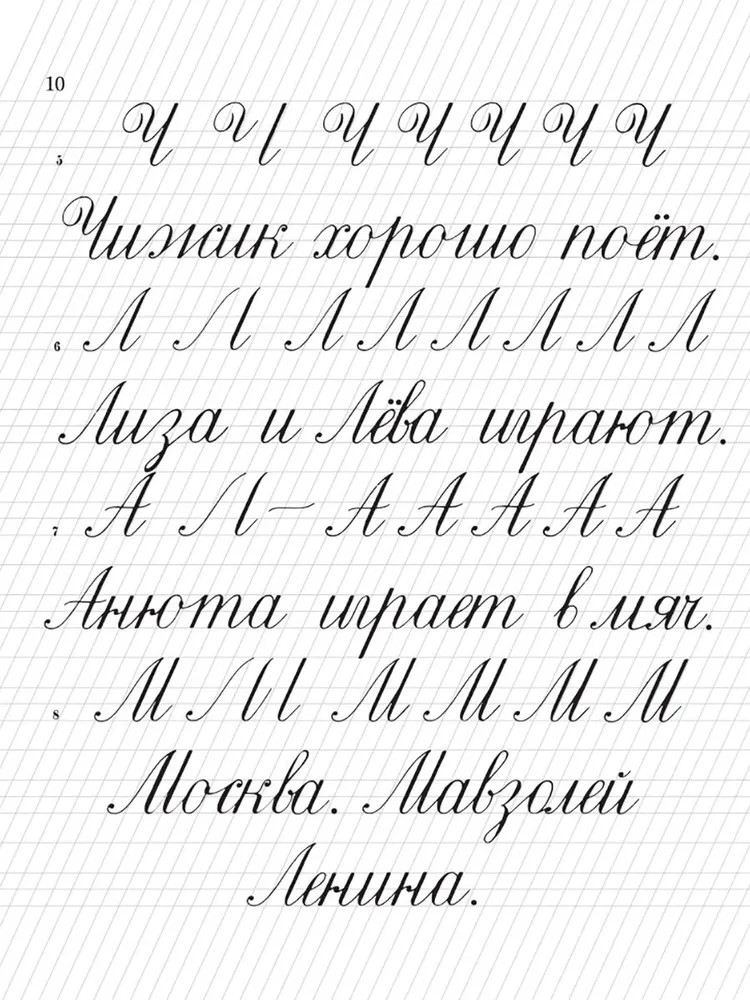 10
5 Ч Ч Ч Ч Ч Ч Ч
Чижик хорошо поёт.
6 Л Л Л Л Л Л Л Л
Лиза и Лёва играют.
7 А Л — А А А А А
Анюта играет в мяч.
8 М Л l М М М М
Москва. Мавзолей
Ленина.